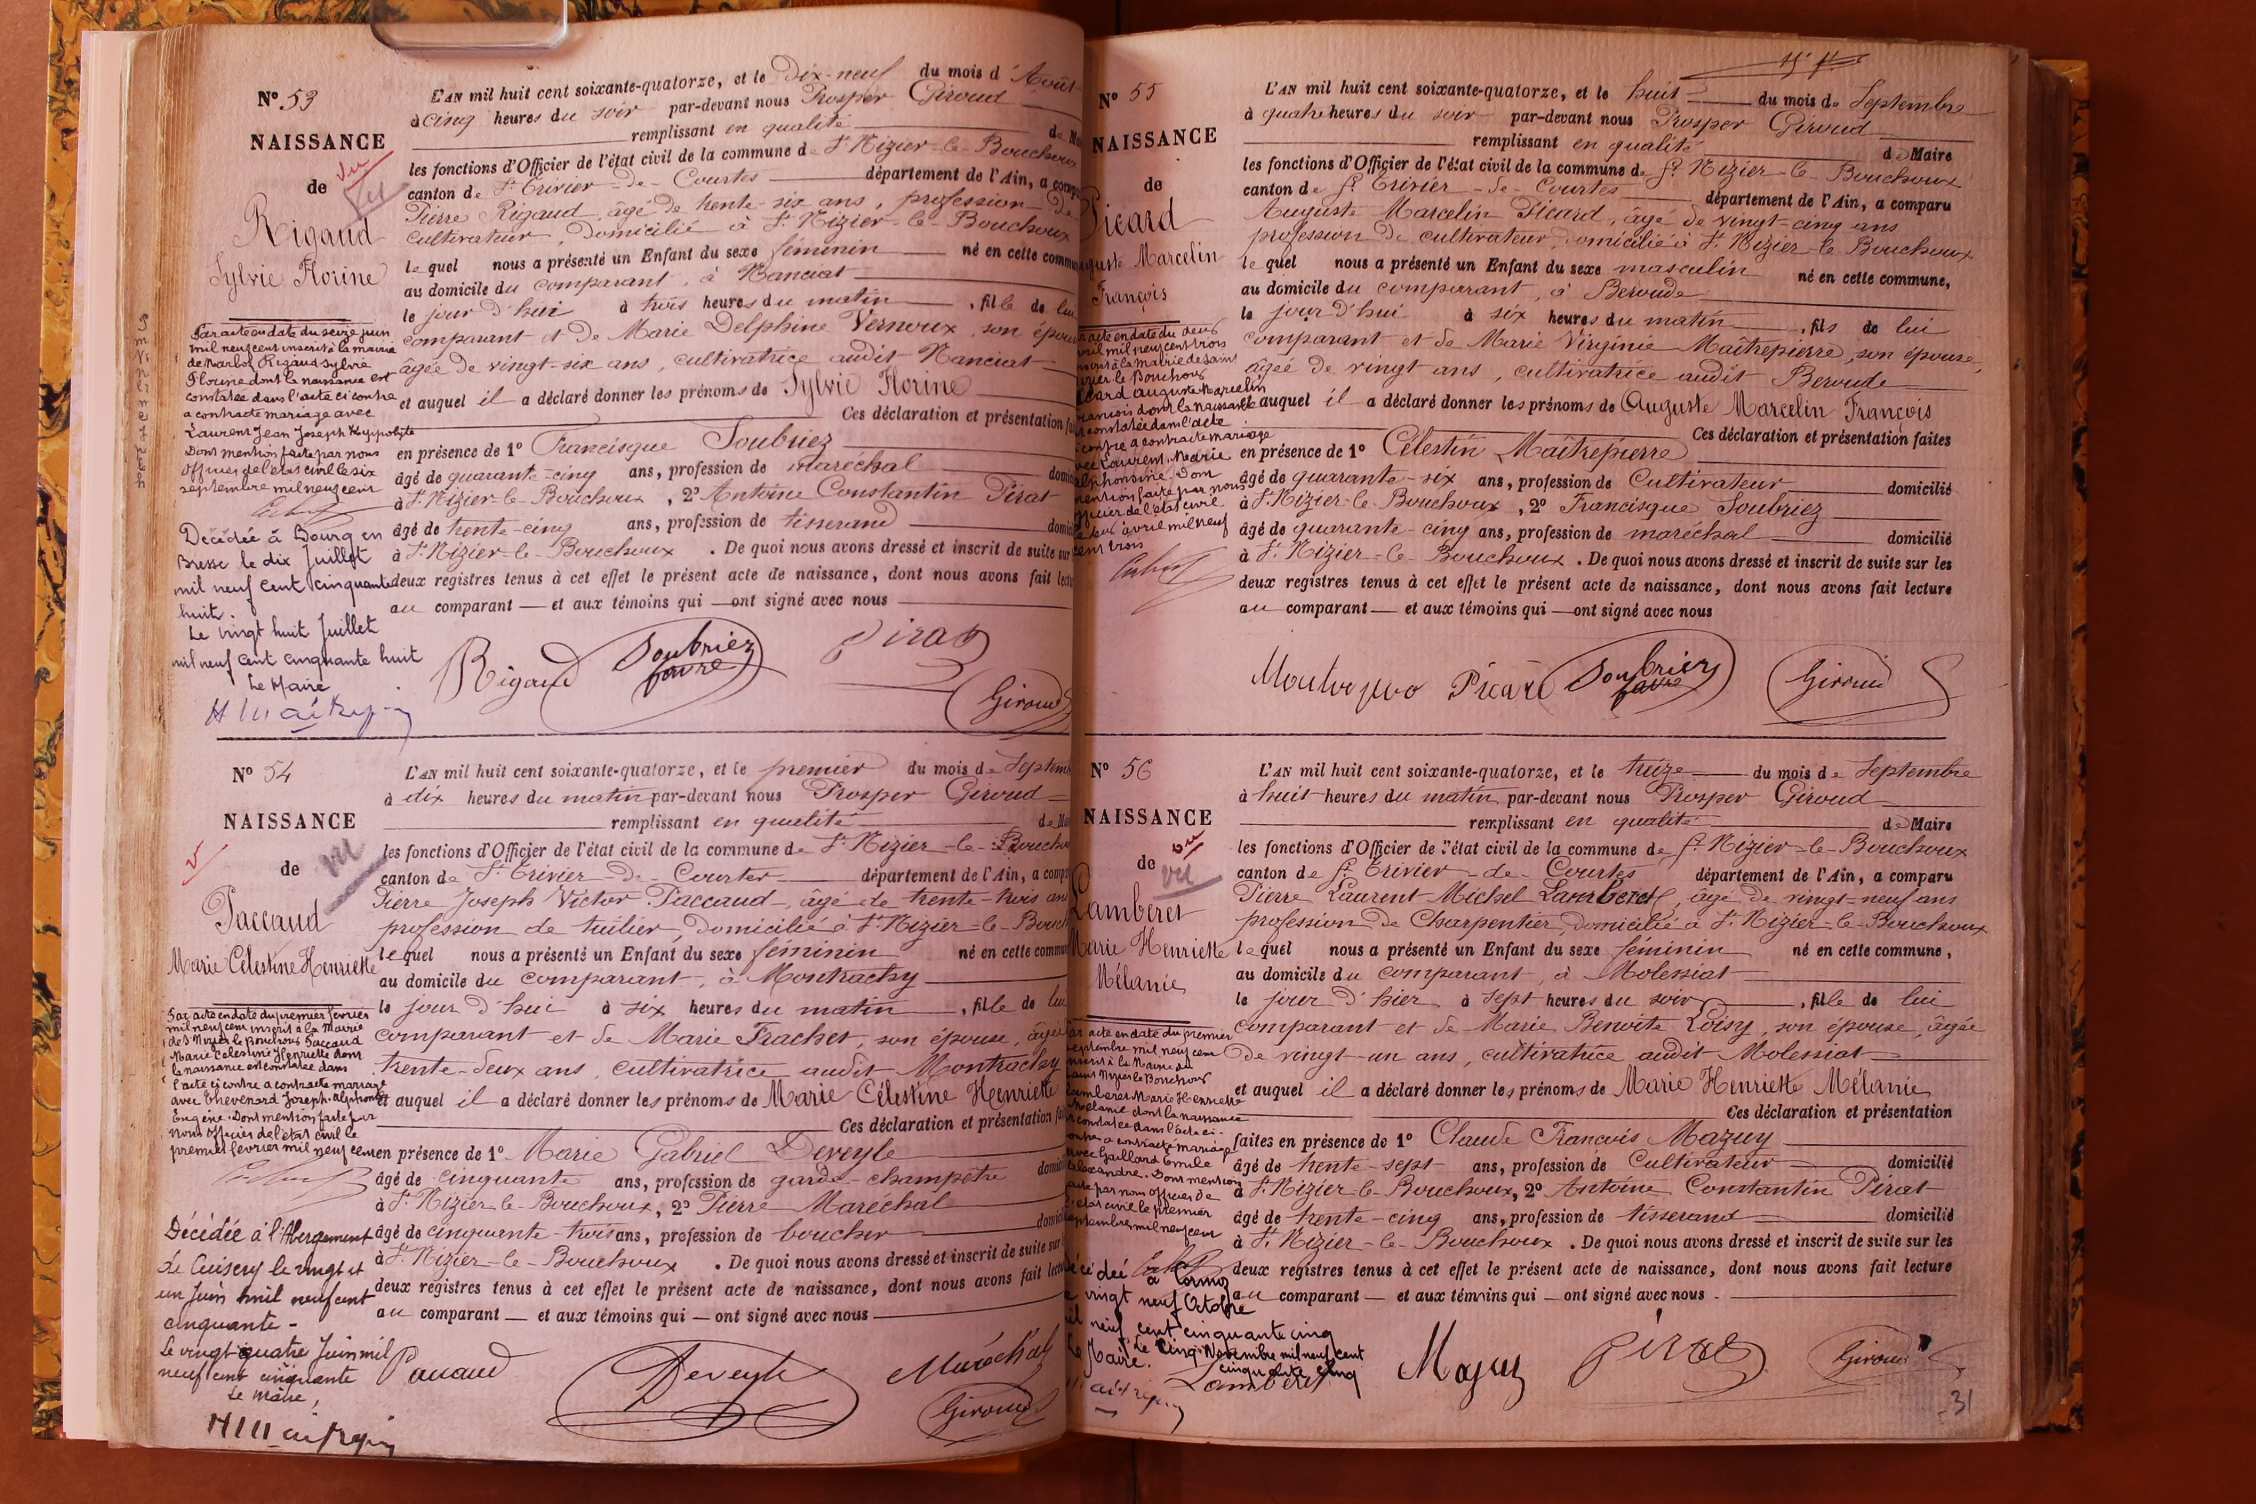 N° 53
NAISSANCE
de
vu
vu
Rigaud
Sylvie Florine
Par acte en date du seize juin
mil neuf cent inscrit à la mairie
de Marboz Rigaud Sylvie
Florine dont la naissance est
constatée dans l'acte ci contre
a contracté mariage avec
Laurent Jean Joseph Hyppolyte
Dont mention faite par nous
officier de l'état civil le six
septembre mil neuf cent
Décédée à Bourg en
Bresse le dix Juillet
mil neuf cent cinquante
huit.
Le vingt huit Juillet
mil neuf cent cinquante huit
Le Maire
L'AN mil huit cent soixante-quatorze, et le dix-neuf du mois d'Août
à cinq heures du soir par-devant nous Prosper Giroud
remplissant en qualité de
les fonctions d'Officier de l'état civil de la commune de St Nizier-le-Bouchoux
canton de St Trivier-de-Courtes département de l'Ain, a comp
Pierre Rigaud, âgé de trente-six ans, profession de
cultivateur, domicilié à St Nizier-le-Bouchoux
lequel nous a présenté un Enfant du sexe féminin né en cette commu
au domicile du comparant, à Nanciat
le jour d'hui à trois heures du matin, fille de lui
comparant et de Marie Delphine Vernoux, son épouse
âgée de vingt-six ans, cultivatrice audit Nanciat
et auquel il a déclaré donner les prénoms de Sylvie Florine
Ces déclaration et présentation
en présence de 1° Francisque Soubriez
âgé de quarante-cinq ans, profession de maréchal domic
à St Nizier-le-Bouchoux, 2° Antoine Constantin Pirat
âgé de trente-cinq ans, profession de tisserand domic
à St Nizier-le-Bouchoux. De quoi nous avons dressé et inscrit de suite sur
deux registres tenus à cet effet le présent acte de naissance, dont nous avons fait lectu
au comparant — et aux témoins qui — ont signé avec nous
Rigaud Soubriez favre Pirat
Giroud
N° 54
NAISSANCE
de
vu
Paccaud
Marie Célestine Henriette
Par acte en date du premier février
mil neuf cent inscrit à la Mairie
de St Nizier le Bouchoux Paccaud
Marie Célestine Henriette dont
la naissance est constatée dans
l'acte ci contre a contracté mariage
avec Thevenard Joseph Alphonse
Eugène. Dont mention faite par
nous officier de l'état civil le
premier février mil neuf cent
Décédée à l'Abergement
de Cuisery le vingt et
un Juin mil neuf cent
cinquante -
Le vingt quatre Juin mil
neuf cent cinquante
Le Maire,
L'AN mil huit cent soixante-quatorze, et le premier du mois de Septem
à dix heures du matin par-devant nous Prosper Giroud
remplissant en qualité de
les fonctions d'Officier de l'état civil de la commune de St Nizier-le-Boucho
canton de St Trivier-de-Courtes département de l'Ain, a comp
Pierre Joseph Victor Paccaud, âgé de trente-trois ans
profession de tuilier, domicilié à St Nizier-le-Bouch
lequel nous a présenté un Enfant du sexe féminin né en cette commu
au domicile du comparant, à Montrachy
le jour d'hui à six heures du matin, fille de lui
comparant et de Marie Frachet, son épouse, âgée
trente-deux ans, cultivatrice audit Montrachy
et auquel il a déclaré donner les prénoms de Marie Célestine Henriette
Ces déclaration et présentation
en présence de 1° Marie Gabriel Deveyle
âgé de cinquante ans, profession de garde-champêtre domici
à St Nizier-le-Bouchoux, 2° Pierre Maréchal
âgé de cinquante-trois ans, profession de boucher domici
à St Nizier-le-Bouchoux. De quoi nous avons dressé et inscrit de suite sur
deux registres tenus à cet effet le présent acte de naissance, dont nous avons fait lectu
au comparant — et aux témoins qui — ont signé avec nous
Paccaud Deveyle Maréchal
Giroud
N° 55
NAISSANCE
de
Picard
Auguste Marcelin
François
acte en date du deux
avril mil neuf cent trois
inscrit à la mairie de Saint
Nizier le Bouchoux
Picard Auguste Marcelin
François dont la naissance
constatée dans l'acte
contre a contracté mariage
avec Laurent Marie
Alphonsine. Dont
mention faite par nous
officier de l'état civil
le deux avril mil neuf
cent trois
L'AN mil huit cent soixante-quatorze, et le huit du mois de Septembre
à quatre heures du soir par-devant nous Prosper Giroud
remplissant en qualité de Maire
les fonctions d'Officier de l'état civil de la commune de St Nizier-le-Bouchoux
canton de St Trivier-de-Courtes département de l'Ain, a comparu
Auguste Marcelin Picard, âgé de vingt-cinq ans
profession de cultivateur, domicilié à St Nizier-le-Bouchoux
lequel nous a présenté un Enfant du sexe masculin né en cette commune,
au domicile du comparant, à Beroude
le jour d'hui à six heures du matin, fils de lui
comparant et de Marie Virginie Maîtrepierre, son épouse,
âgée de vingt ans, cultivatrice audit Beroude
et auquel il a déclaré donner les prénoms de Auguste Marcelin François
Ces déclaration et présentation faites
en présence de 1° Célestin Maîtrepierre
âgé de quarante-six ans, profession de Cultivateur domicilié
à St Nizier-le-Bouchoux, 2° Francisque Soubriez
âgé de quarante-cinq ans, profession de maréchal domicilié
à St Nizier-le-Bouchoux. De quoi nous avons dressé et inscrit de suite sur les
deux registres tenus à cet effet le présent acte de naissance, dont nous avons fait lecture
au comparant — et aux témoins qui — ont signé avec nous
Picard Soubriez favre Giroud
N° 56
NAISSANCE
de
vu
vu
Lamberet
Marie Henriette
Mélanie
acte en date du premier
septembre mil neuf cent
inscrit à la Mairie de
Saint Nizier le Bouchoux
Lamberet Marie Henriette
Mélanie dont la naissance
constatée dans l'acte ci-
contre a contracté mariage
avec Gaillard Emile
Alexandre. Dont mention
faite par nous officier de
l'état civil le premier
septembre mil neuf cent
Décédée à Cormoz
le vingt neuf Octobre
mil neuf cent cinquante cinq
Le Cinq Novembre mil neuf cent
cinquante cinq
Le Maire.
L'AN mil huit cent soixante-quatorze, et le treize du mois de Septembre
à huit heures du matin par-devant nous Prosper Giroud
remplissant en qualité de Maire
les fonctions d'Officier de l'état civil de la commune de St Nizier-le-Bouchoux
canton de St Trivier-de-Courtes département de l'Ain, a comparu
Pierre Laurent Michel Lamberet, âgé de vingt-neuf ans
profession de Charpentier, domicilié à St Nizier-le-Bouchoux
lequel nous a présenté un Enfant du sexe féminin né en cette commune,
au domicile du comparant, à Molessiat
le jour d'hier à sept heures du soir, fille de lui
comparant et de Marie Benoite Loisy, son épouse, âgée
de vingt-un ans, cultivatrice audit Molessiat
et auquel il a déclaré donner les prénoms de Marie Henriette Mélanie
Ces déclaration et présentation
faites en présence de 1° Claude François Mazuy
âgé de trente-sept ans, profession de Cultivateur domicilié
à St Nizier-le-Bouchoux, 2° Antoine Constantin Pirat
âgé de trente-cinq ans, profession de tisserand domicilié
à St Nizier-le-Bouchoux. De quoi nous avons dressé et inscrit de suite sur les
deux registres tenus à cet effet le présent acte de naissance, dont nous avons fait lecture
au comparant — et aux témoins qui — ont signé avec nous.
Lamberet Mazuy Pirat Giroud
31